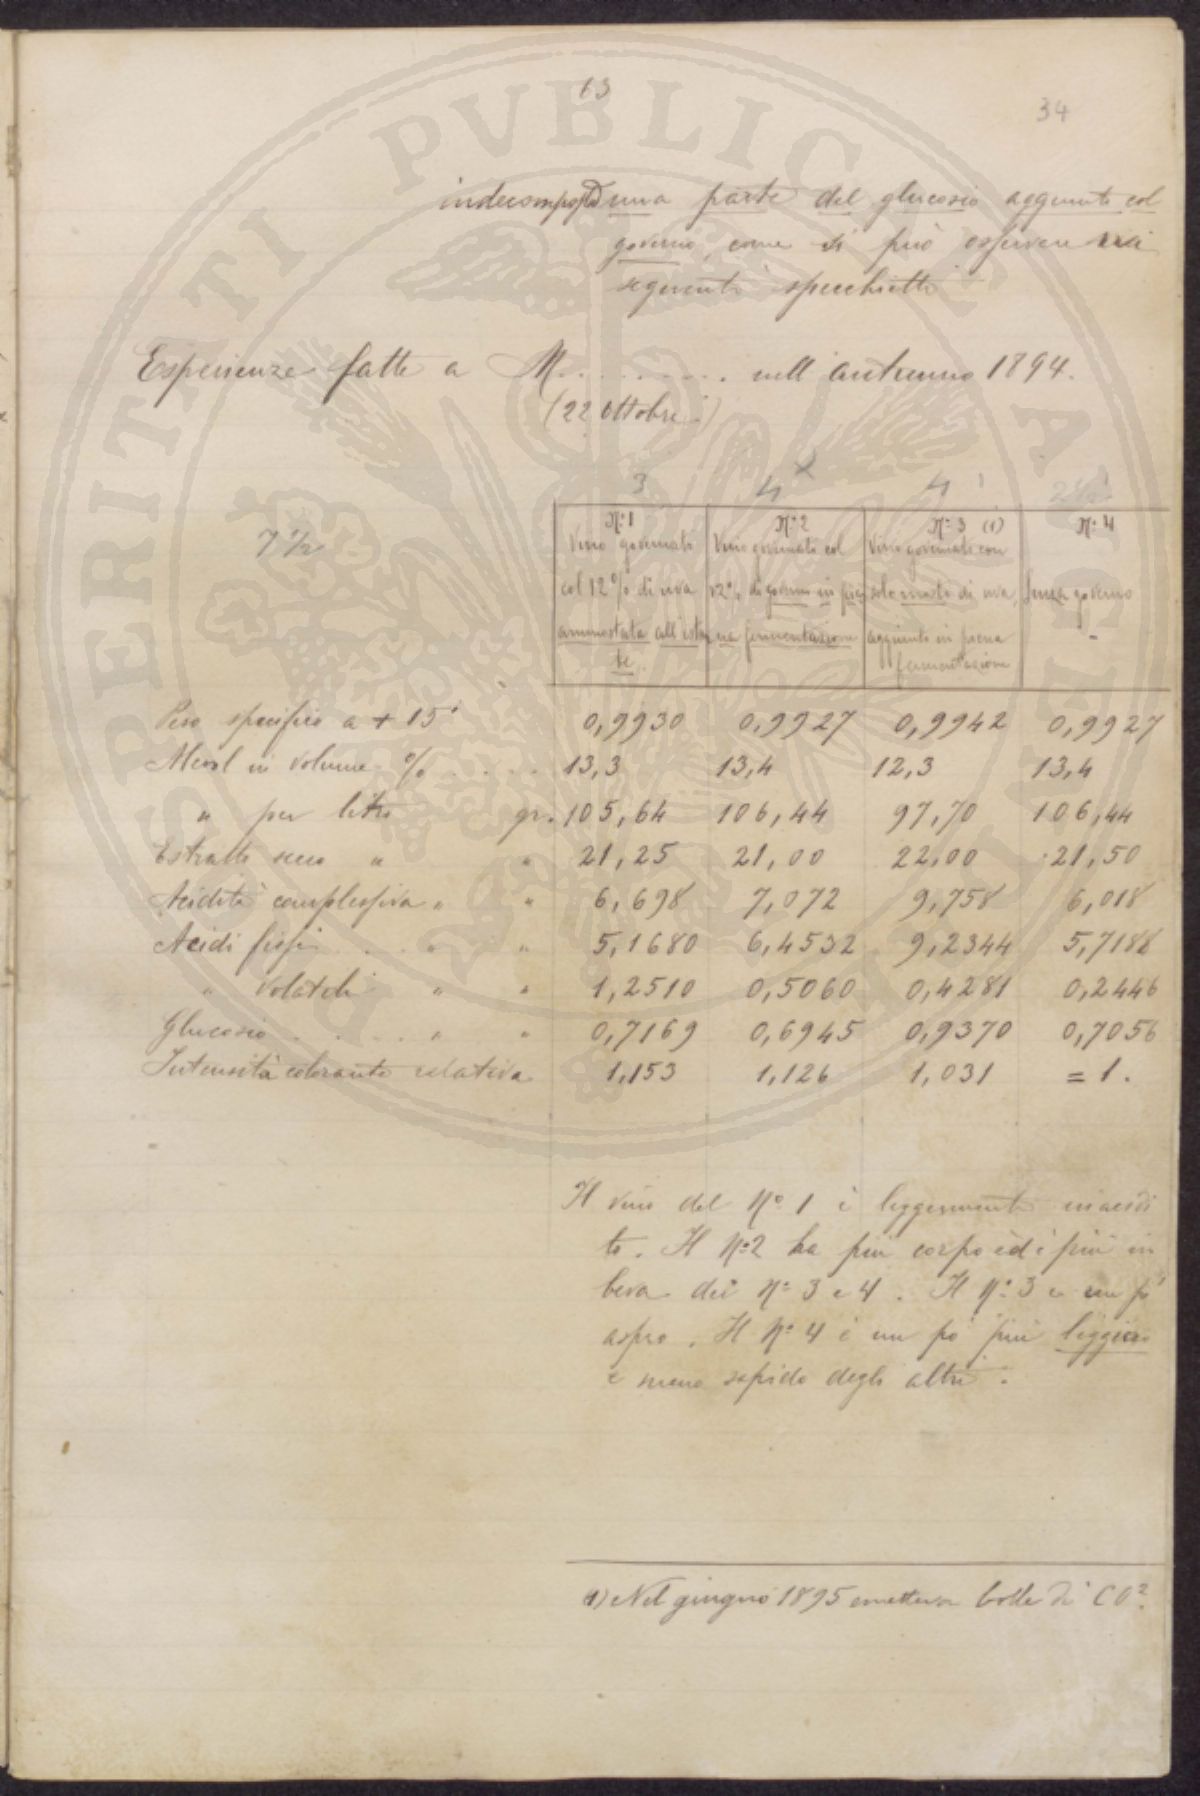 63
34
indecomposta una parte del glucosio aggiunto col
governo, come si può osservare nei
seguenti specchietti
Esperienze fatte a M.......... nell'autunno 1894.
(22 Ottobre)
3 4 x 4
7 1/2
N.º 1 N.º 2 N.º 3 (1) N.º 4
Vino governato Vino governato col Vino governato con
col 12 % di uva 12 % di governo in pie solo mosto di uva, Senza governo
ammostata all'esta na fermentazione aggiunto in piena -
te. fermentazione
Peso specifico a + 15° 0,9930 0,9927 0,9942 0,9927
Alcool in volume % .... 13,3 13,4 12,3 13,4
" per litro gr. 105,64 106,44 97,70 106,44
Estratto secco " " 21,25 21,00 22,00 21,50
Acidità complessiva " " 6,698 7,072 9,758 6,018
Acidi fissi .... " " 5,1680 6,4532 9,2344 5,7188
" volatili " " 1,2510 0,5060 0,4281 0,2446
Glucosio .... " " 0,7169 0,6945 0,9370 0,7056
Intensità colorante relativa 1,153 1,126 1,031 = 1.
Il vino del Nº 1 è leggermente inacidi
to. Il Nº 2 ha più corpo ed è più in
beva dei Nº 3 e 4. Il Nº 3 è un pò
aspro. Il Nº 4 è un pò più leggiero
e meno sapido degli altri.
(1) Nel giugno 1895 emetteva bolle di CO².
PERITI PVBLIC